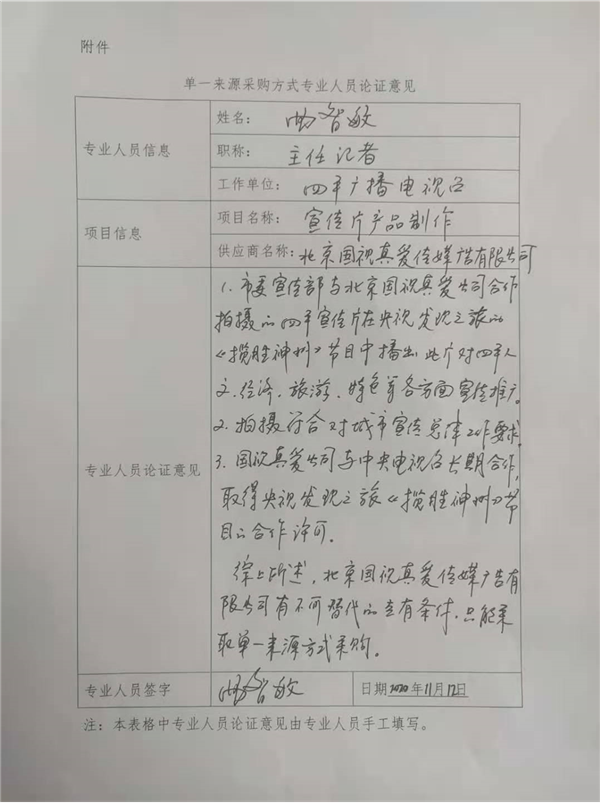 附件
单一来源采购方式专业人员论证意见
专业人员信息
姓名：曲智敏
职称：主任记者
工作单位：四平广播电视台
项目信息
项目名称：宣传片产品制作
供应商名称：北京国视真爱传媒广告有限公司
专业人员论证意见
1、市委宣传部与北京国视真爱公司合作
拍摄的四平宣传片在央视发现之旅的
《揽胜神州》节目中播出，此片对四平人
文、经济、旅游、特色等各方面宣传推广。
2、拍摄符合对城市宣传总体工作要求。
3、国视真爱公司与中央电视台长期合作，
取得央视发现之旅《揽胜神州》节
目的合作许可。
综上所述，北京国视真爱传媒广告有
限公司有不可替代的专有条件，只能采
取单一来源方式采购。
专业人员签字
曲智敏
日期2020年11月12日
注：本表格中专业人员论证意见由专业人员手工填写。